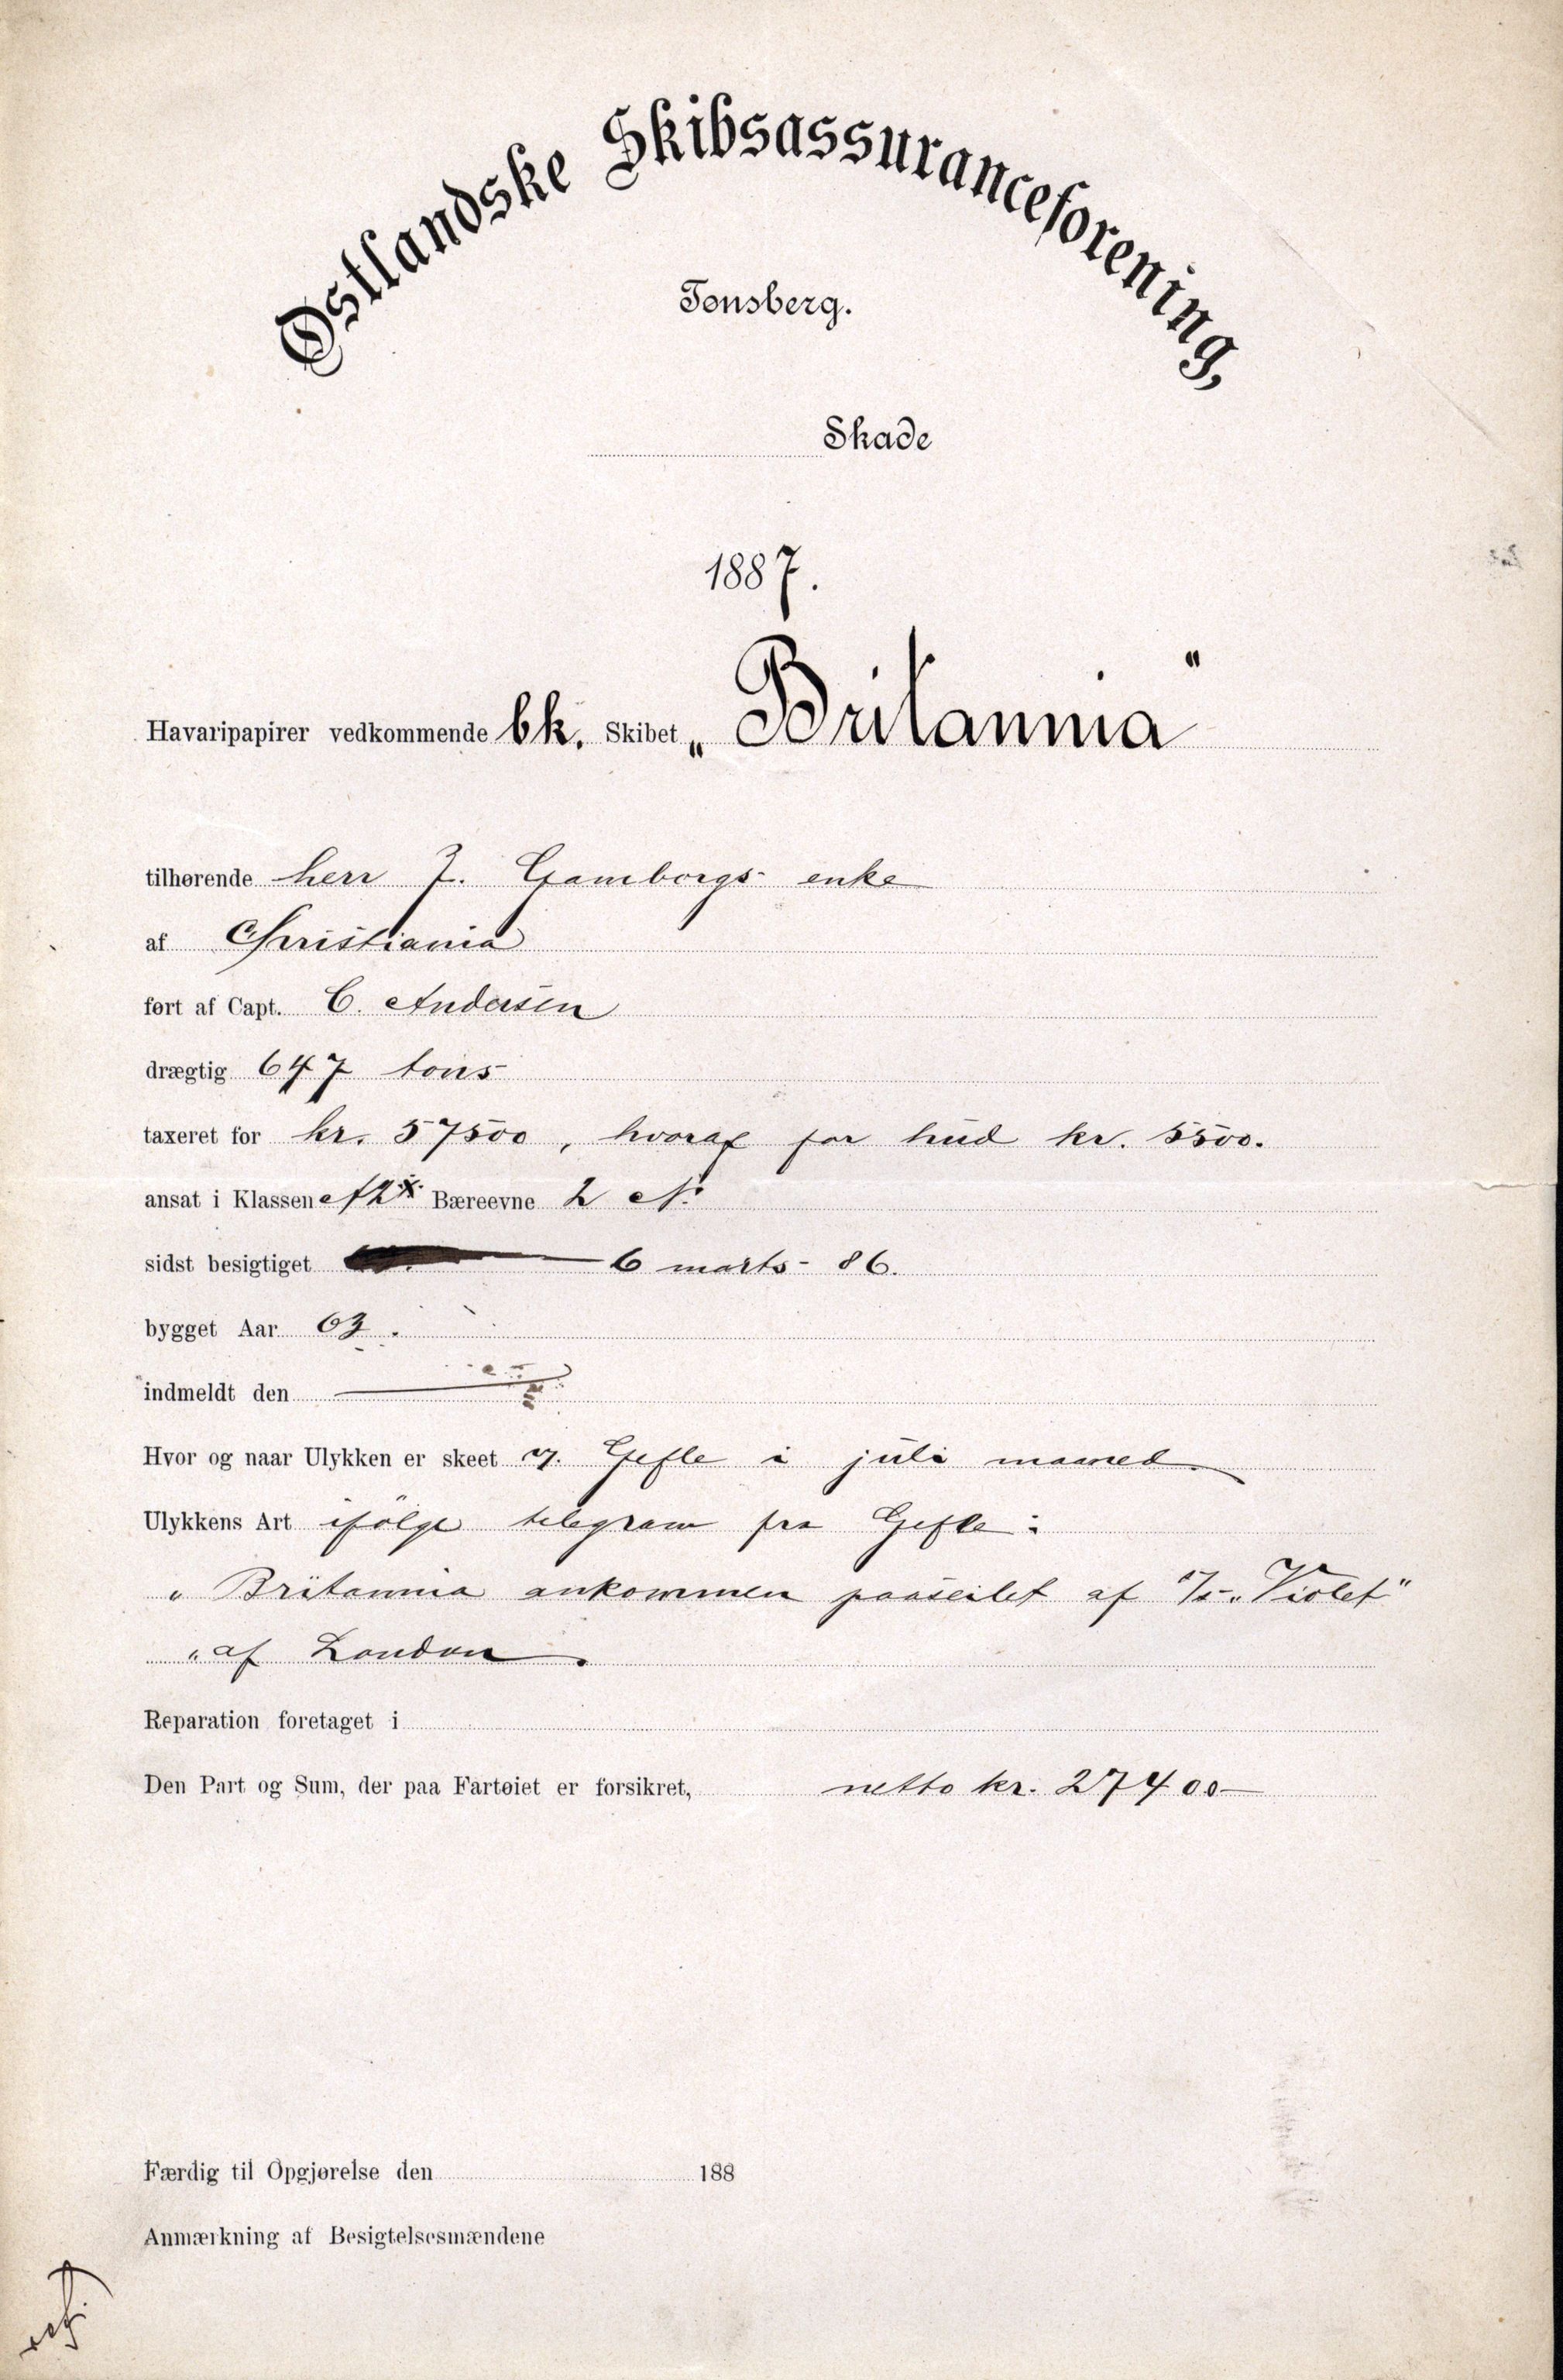 Østlandske Skibsassuranceforening,
Tønsberg.
Skade
1887.
Havaripapirer vedkommende bk. Skibet „Britannia"
tilhørende herr J. Gamborgs enke
af Christiania
ført af Capt. C. Andersen
drægtig 647 tons
taxeret for kr. 57500, hvoraf for hud kr. 5500.
ansat i Klassen A2 Bæreevne 2 N.
sidst besigtiget 6 marts - 86.
bygget Aar 63.
indmeldt den
Hvor og naar Ulykken er skeet v. Gefle i juli maaned
Ulykkens Art ifølge telegram fra Gefle:
„Britannia ankommen paaseilet af S/S „Violet"
„af London.
Reparation foretaget i
Den Part og Sum, der paa Fartøiet er forsikret, netto kr. 27400 —
Færdig til Opgjørelse den 188
Anmærkning af Besigtelsesmændene